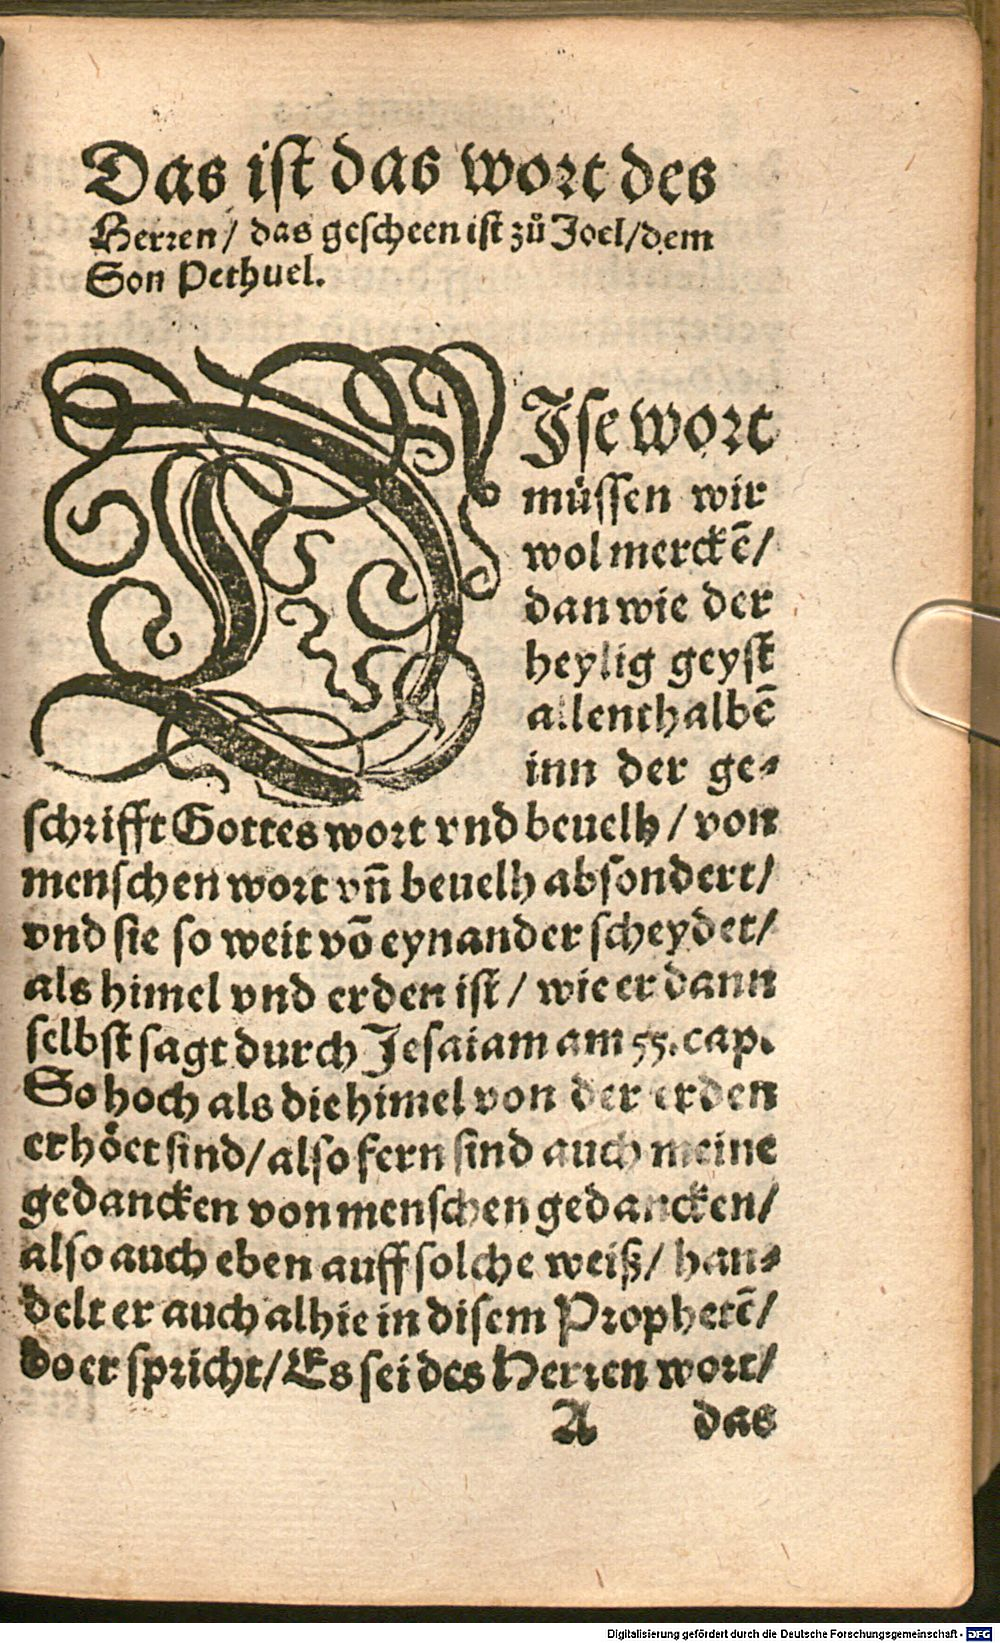 Das ist das wort des
Herren / das gescheen ist zů Joel / dem
Son Pethuel.
DIse wort
müssen wir
wol merckē /
dan wie der
heylig geyst
allenthalbē
inn der ge⸗
schrifft Gottes wort vnd beuelh / von
menschen wort vñ beuelh absondert /
vnd sie so weit võ eynander scheydet /
als himel vnd erden ist / wie er dann
selbst sagt durch Jesaiam am 55. cap.
So hoch als die himel von der erden
erhöet sind / also fern sind auch meine
gedancken von menschen gedancken /
also auch eben auff solche weiß / han⸗
delt er auch alhie in disem Prophetē /
do er spricht / Es sei des Herren wort /
A das
Digitalisierung gefördert durch die Deutsche Forschungsgemeinschaft - DFG